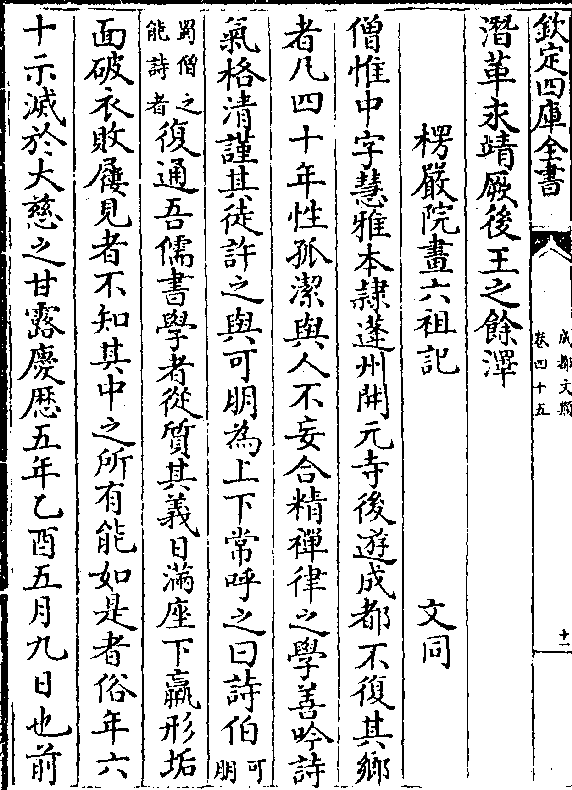 欽定四庫全書
成都文類
卷四十五
十二
潛革永靖厥後王之餘澤
楞嚴院畫六祖記
文同
僧惟中字慧雅本隸蓬州開元寺後遊成都不復其鄉
者凡四十年性孤潔與人不妄合精禪律之學善吟詩
氣格清謹其徒許之與可朋為上下常呼之曰詩伯可朋
蜀僧之能詩者復通吾儒書學者從質其義日滿座下羸形垢
面破衣敗屨見者不知其中之所有能如是者俗年六
十示滅於大慈之甘露慶厯五年乙酉五月九日也前